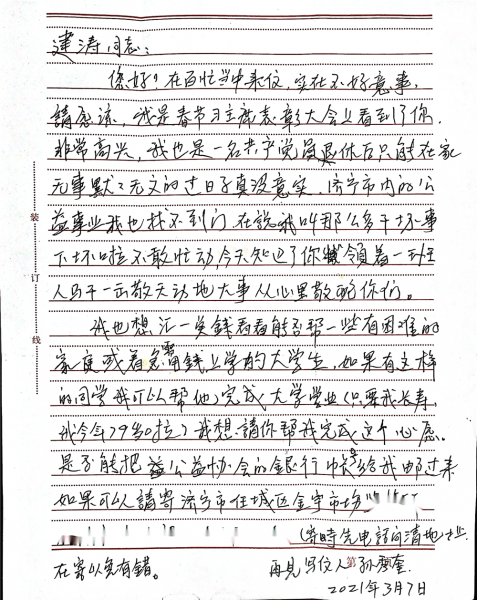 建涛同志：
您好！在百忙当中来信，实在不好意事，
請原谅，我是春节习主席表彰大会上看到了你，
非常高兴，我也是一名共产党员退休后只能在家
无事默々无文的过日子真没意实，济宁市内的公
益事业我也找不到门，在説我叫那么多干坏事
下坏啦不敢忙动，今天知道了你带領着一班
人马干一击敬天动地大事从心里敬畋你们。
我也想汇一笑錢看看能否帮一些有困难的
家庭或着急需用錢上学的大学生，如果有这样
的同学我可以帮他々完成大学学业（只要我长寿，
我今年79岁啦）我想請你帮我完成这个心愿。
是否能把益公益协会的银行帐号给我邮过来
如果可以請寄济宁市任城区金宇市场
（寄時先电話问清地址
在寄以免有錯。 再見 写信人 孙
2021年3月7日
第
装
订
线